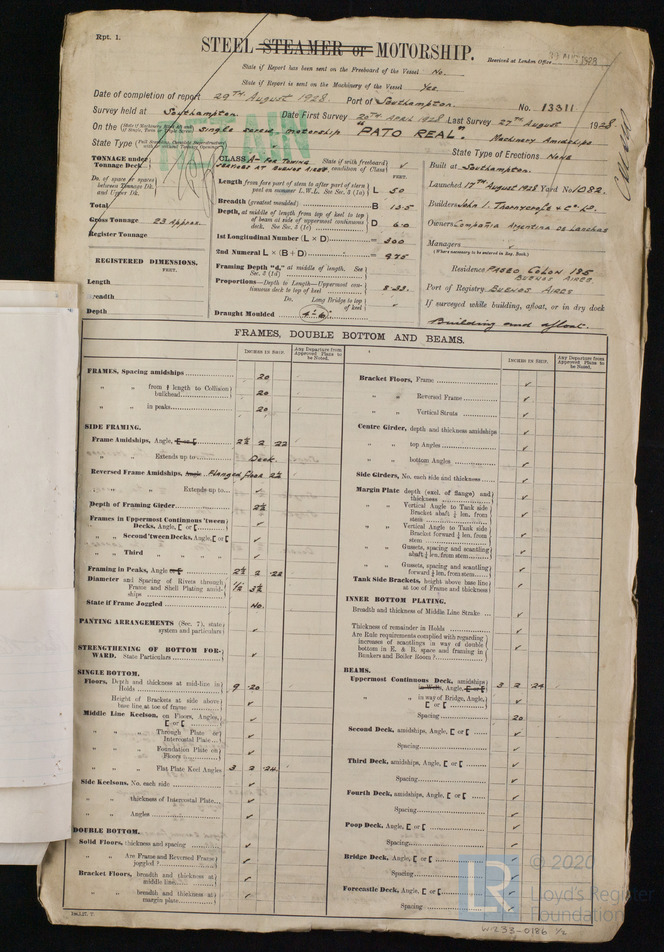 Rpt. 1.
STEEL STEAMER or MOTORSHIP.
Received at London Office
State if Report has been sent on the Freeboard of the Vessel No.
State if Report is sent on the Machinery of the Vessel Yes.
Date of completion of report 29TH August 1928. Port of Southampton.
No. 13311
Survey held at Southampton. Date First Survey 20TH April 1928 Last Survey 27TH August 1928
On the single screw motorship "PATO REAL". Machinery Amidships
State Type State Type of Erections None
RETAIN
TONNAGE under Tonnage Deck
Do. of space or spaces between Tonnage Dk. and Upper Dk.
Total
Gross Tonnage 23 Approx.
Register Tonnage
REGISTERED DIMENSIONS.
FEET.
Length
Breadth
Depth
CLASS A- FOR TOWING SERVICES AT BUENOS AIRES. State (if with freeboard) condition of Class
FEET.
Length from fore part of stem to after part of stern post on summer L.W.L. See Sec. 3 (1a) L 50
Breadth (greatest moulded) B 13.5
Depth, at middle of length from top of keel to top of beam at side of uppermost continuous deck. See Sec. 3 (1c) D 6.0
1st Longitudinal Number (L × D) = 300
2nd Numeral L × (B + D) = 975
Framing Depth "d," at middle of length. See Sec. 3 (1d)
Proportions—Depth to Length—Uppermost continuous deck to top of keel 8.33.
Do. Long Bridge to top of keel
Draught Moulded 4'-6"
Built at Southampton.
Launched 17TH August 1928 Yard No. 1082.
Builders John I. Thornycroft & Co. Ld.
Owners Compañia Argentina de Lanchas
Managers
(Where necessary to be entered in Reg. Book.)
Residence PASEO COLON 185
BUENOS AIRES
Port of Registry BUENOS AIRES
If surveyed while building, afloat, or in dry dock
Building and afloat.
FRAMES, DOUBLE BOTTOM AND BEAMS.
INCHES IN SHIP.
Any Departure from Approved Plans to be Noted.
INCHES IN SHIP.
Any Departure from Approved Plans to be Noted.
FRAMES, Spacing amidships 20
" " from ⅕ length to Collision bulkhead 20
" " in peaks 20
SIDE FRAMING.
Frame Amidships, Angle, [ or [ 2½ 2 .22
" " Extends up to Deck.
Reversed Frame Amidships, Angle Flanged floor 2½
" " Extends up to
Depth of Framing Girder 2½
Frames in Uppermost Continuous 'tween Decks, Angle, [ or [
" " Second 'tween Decks, Angle, [ or [
" " Third " " " "
Framing in Peaks, Angle or [ 2½ 2 .22
Diameter and Spacing of Rivets through Frame and Shell Plating amidships 1/2 3½
State if Frame Joggled No.
PANTING ARRANGEMENTS (Sec. 7), state system and particulars
STRENGTHENING OF BOTTOM FORWARD. State Particulars
SINGLE BOTTOM.
Floors, Depth and thickness at mid-line in Holds 9 .20
Height of Brackets at side above base line at toe of frame
Middle Line Keelson, on Floors, Angles, [ or [
" " Through Plate or Intercostal Plate
" " Foundation Plate on Floors
" " Flat Plate Keel Angles 3 2 .24
Side Keelsons, No. each side
" " thickness of Intercostal Plate
" " Angles
DOUBLE BOTTOM.
Solid Floors, thickness and spacing
" " Are Frame and Reversed Frame joggled?
Bracket Floors, breadth and thickness at middle line
" " breadth and thickness at margin plate
Bracket Floors, Frame
" " Reversed Frame
" " Vertical Struts
Centre Girder, depth and thickness amidships
" " top Angles
" " bottom Angles
Side Girders, No. each side and thickness
Margin Plate depth (excl. of flange) and thickness
" " Vertical Angle to Tank side Bracket abaft ¼ len. from stem
" " Vertical Angle to Tank side Bracket forward ¼ len. from stem
" " Gussets, spacing and scantling abaft ¼ len. from stem
" " Gussets, spacing and scantling forward ¼ len. from stem
Tank Side Brackets, height above base line at toe of Frame and thickness
INNER BOTTOM PLATING.
Breadth and thickness of Middle Line Strake
Thickness of remainder in Holds
Are Rule requirements complied with regarding increases of scantlings in way of double bottom in E. & B. space and framing in Bunkers and Boiler Room?
BEAMS.
Uppermost Continuous Deck, amidships in Wells, Angle, [ or [ 3 2 .24
" " in way of Bridge, Angle, [ or [
Spacing 20
Second Deck, amidships, Angle, [ or [
Spacing
Third Deck, amidships, Angle, [ or [
Spacing
Fourth Deck, amidships, Angle, [ or [
Spacing
Poop Deck, Angle, [ or [
Spacing
Bridge Deck, Angle, [ or [
Spacing
Forecastle Deck, Angle, [ or [
Spacing
© 2020
Lloyd's Register
Foundation
W233-0186 1/2